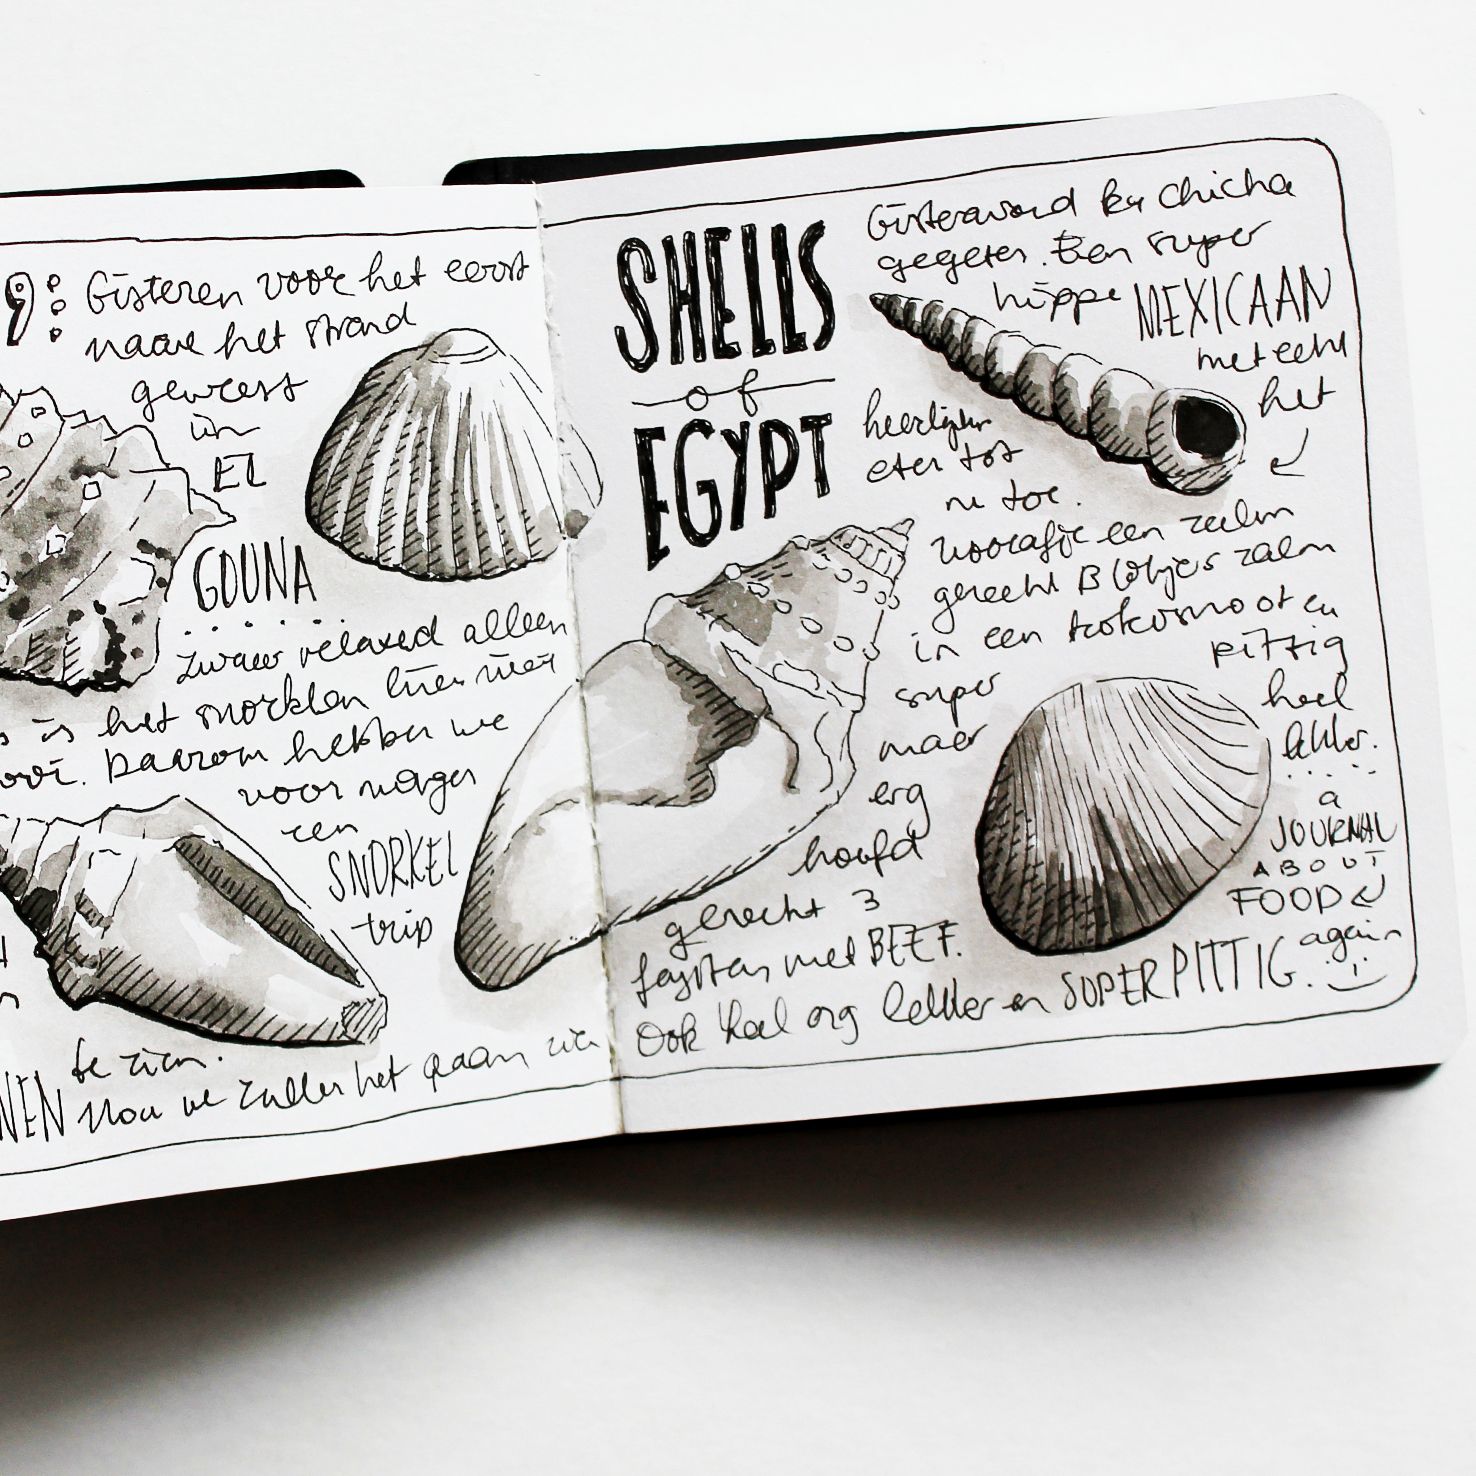 9:
Gisteren voor het eerst
naar het strand
geweest
in
EL
GOUNA
zwaar relaxed alleen
is het snorklen hier niet
Daarom hebben we
voor morgen
een
SNORKEL
trip
te zien.
NEN Nou we zullen het gaan zien
SHELLS
of
EGYPT
Gisteravond bij Chicha
gegeten. Een super
hippe MEXICAAN
met echt
het
heerlijkste
eten tot
nu toe.
Voorafje een
gerecht zalm
in een kokosnoot en
pittig
super
heel
maar
lekker.
erg
hoofd
gerecht 3
fajitas met BEEF.
Ook heel erg lekker en SUPER PITTIG.
a
JOURNAL
ABOUT
FOOD
again